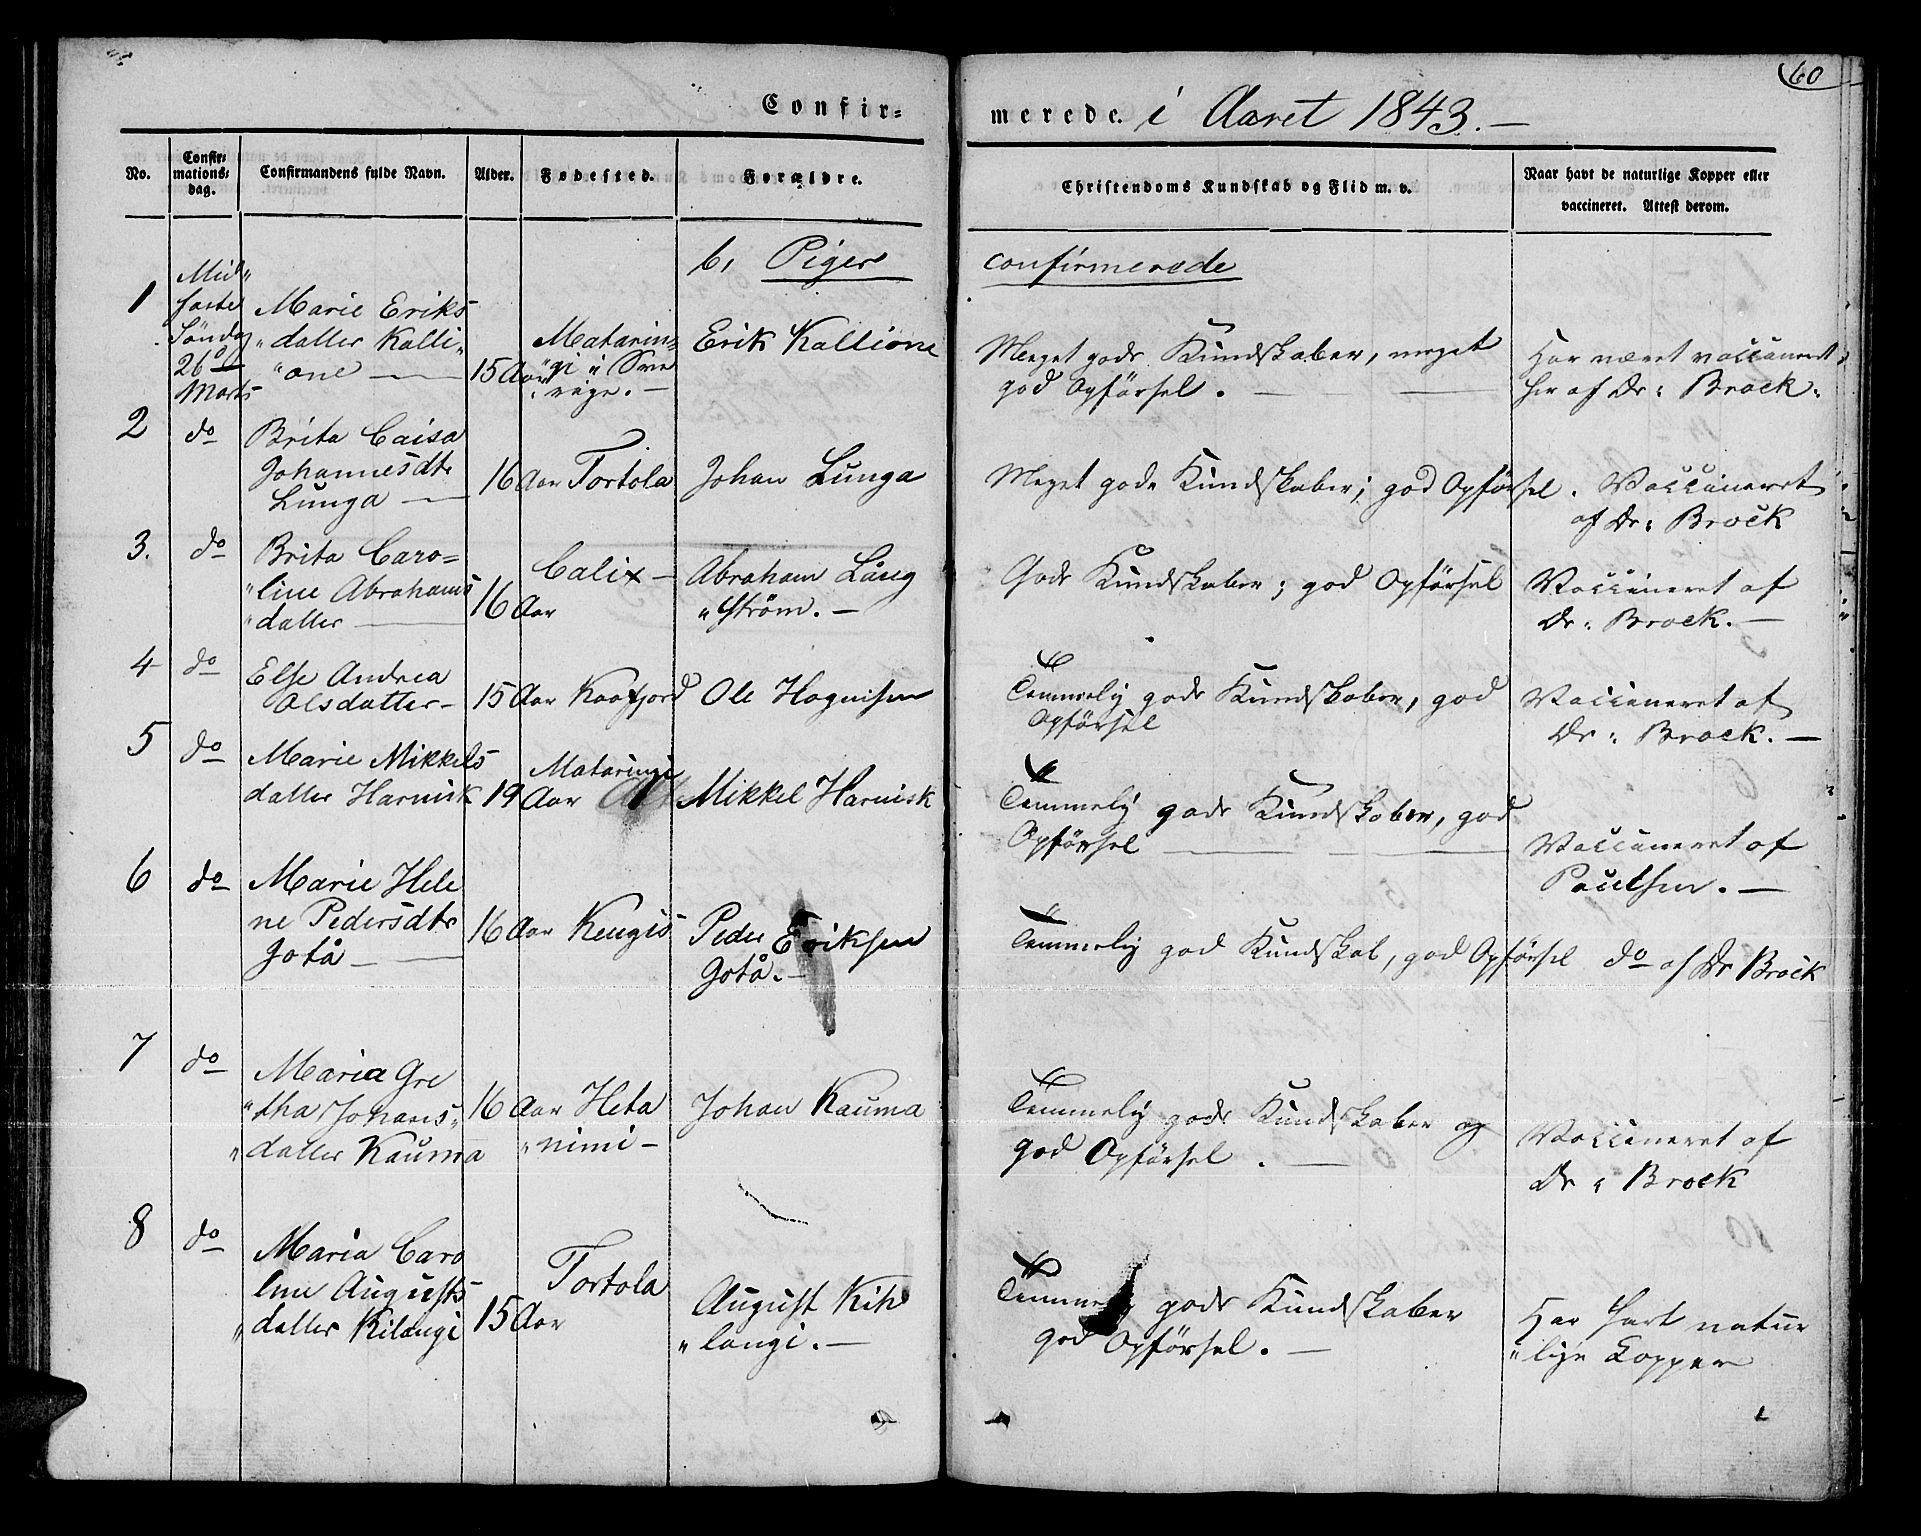 60
Confir= merede. i Aaret 1843.—
No.
Confir=
mations=
dag.
Confirmandens fulde Navn.
Alder.
Fødested.
Forældre.
Christendoms Kundskab og Flid m. v.
Naar havt de naturlige Kopper eller
vaccineret. Attest derom.
b, Piger confirmerede
1
Mid„
faste
Søndag
26
Marts
Marie Eriks
„datter Kalli„
„one —
15 Aar
Matarin„
„gi i Sve
„rige. —
Erik Kallione
Meget gode Kundskaber, meget
god Opførsel. —
Har været vaccineret
her af Dr: Brock.
2
do
Brita Caisa
Johannesdtr
Lunga —
16 Aar
Tortola
Johan Lunga
Meget gode Kundskaber; god Opførsel.
Vaccineret
af Dr: Brock
3.
do
Brita Caro=
„line Abrahams
„datter —
16 Aar
Calix —
Abraham Lång
„strøm. —
Gode Kundskaber; god Opførsel
Vaccineret af
Dr: Brock. —
4
do
Else Andrea
Olsdatter —
15 Aar
Kaafjord
Ole Hagensen
Temmelig gode Kundskaber, god
Opførsel
Vaccineret af
Dr: Brock. —
5
do
Marie Mikkels
datter Harnisk
19 Aar
Mataringi
Mikkel Harnisk
Temmelig gode Kundskaber, god
Opførsel —
Vaccineret af
Paulsen. —
6
do
Marie Hele
ne Pedersdtr
Jotå —
16 Aar
Kengis
Peder Eriksen
Jotå. —
Temmelig god Kundskab, god Opførsel
do af Dr Brock
7
do
Maria Gre
„tha Johans„
„datter Kauma
16 Aar
Heta
„nimi —
Johan Kauma
Temmelig gode Kundskaber og
god Opførsel. —
Vaccineret af
Dr: Brock
8
do
Maria Caro
line Augusts
„datter Kilangi
15 Aar
Tortola
August Kih
„langi. —
Temmelig gode Kundskaber
god Opførsel. —
Har havt natur
„lige Kopper